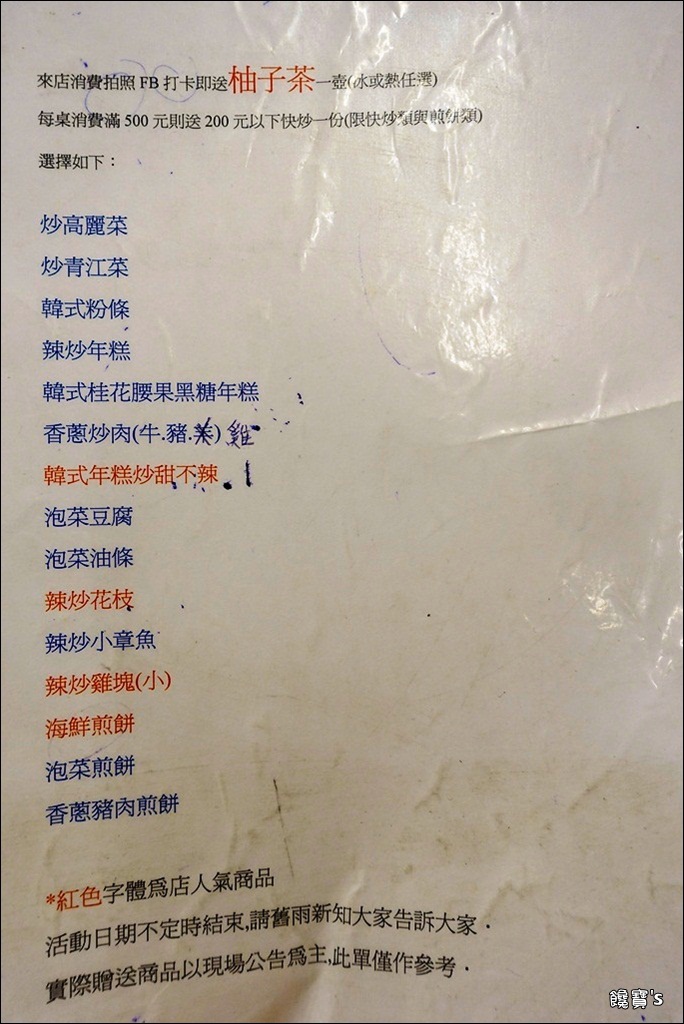 來店消費拍照 FB 打卡即送柚子茶一壺(冰或熱任選)
每桌消費滿 500 元則送 200 元以下快炒一份(限快炒類與煎餅類)
選擇如下：
炒高麗菜
炒青江菜
韓式粉條
辣炒年糕
韓式桂花腰果黑糖年糕
香蔥炒肉(牛.豬.羊) 雞
韓式年糕炒甜不辣
泡菜豆腐
泡菜油條
辣炒花枝
辣炒小章魚
辣炒雞塊(小)
海鮮煎餅
泡菜煎餅
香蔥豬肉煎餅
*紅色字體為店人氣商品
活動日期不定時結束,請舊雨新知大家告訴大家．
實際贈送商品以現場公告為主,此單僅作參考．
饞寶's